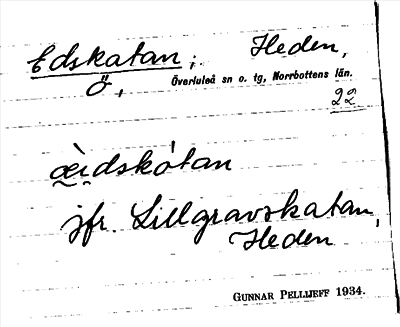 Edskatan; Heden,
ö, Överluleå sn o. tg, Norrbottens län.
22
æ̀i̯dskȯ́tan
jfr. Lillgravskatan,
Heden
GUNNAR PELLIJEFF 1934.